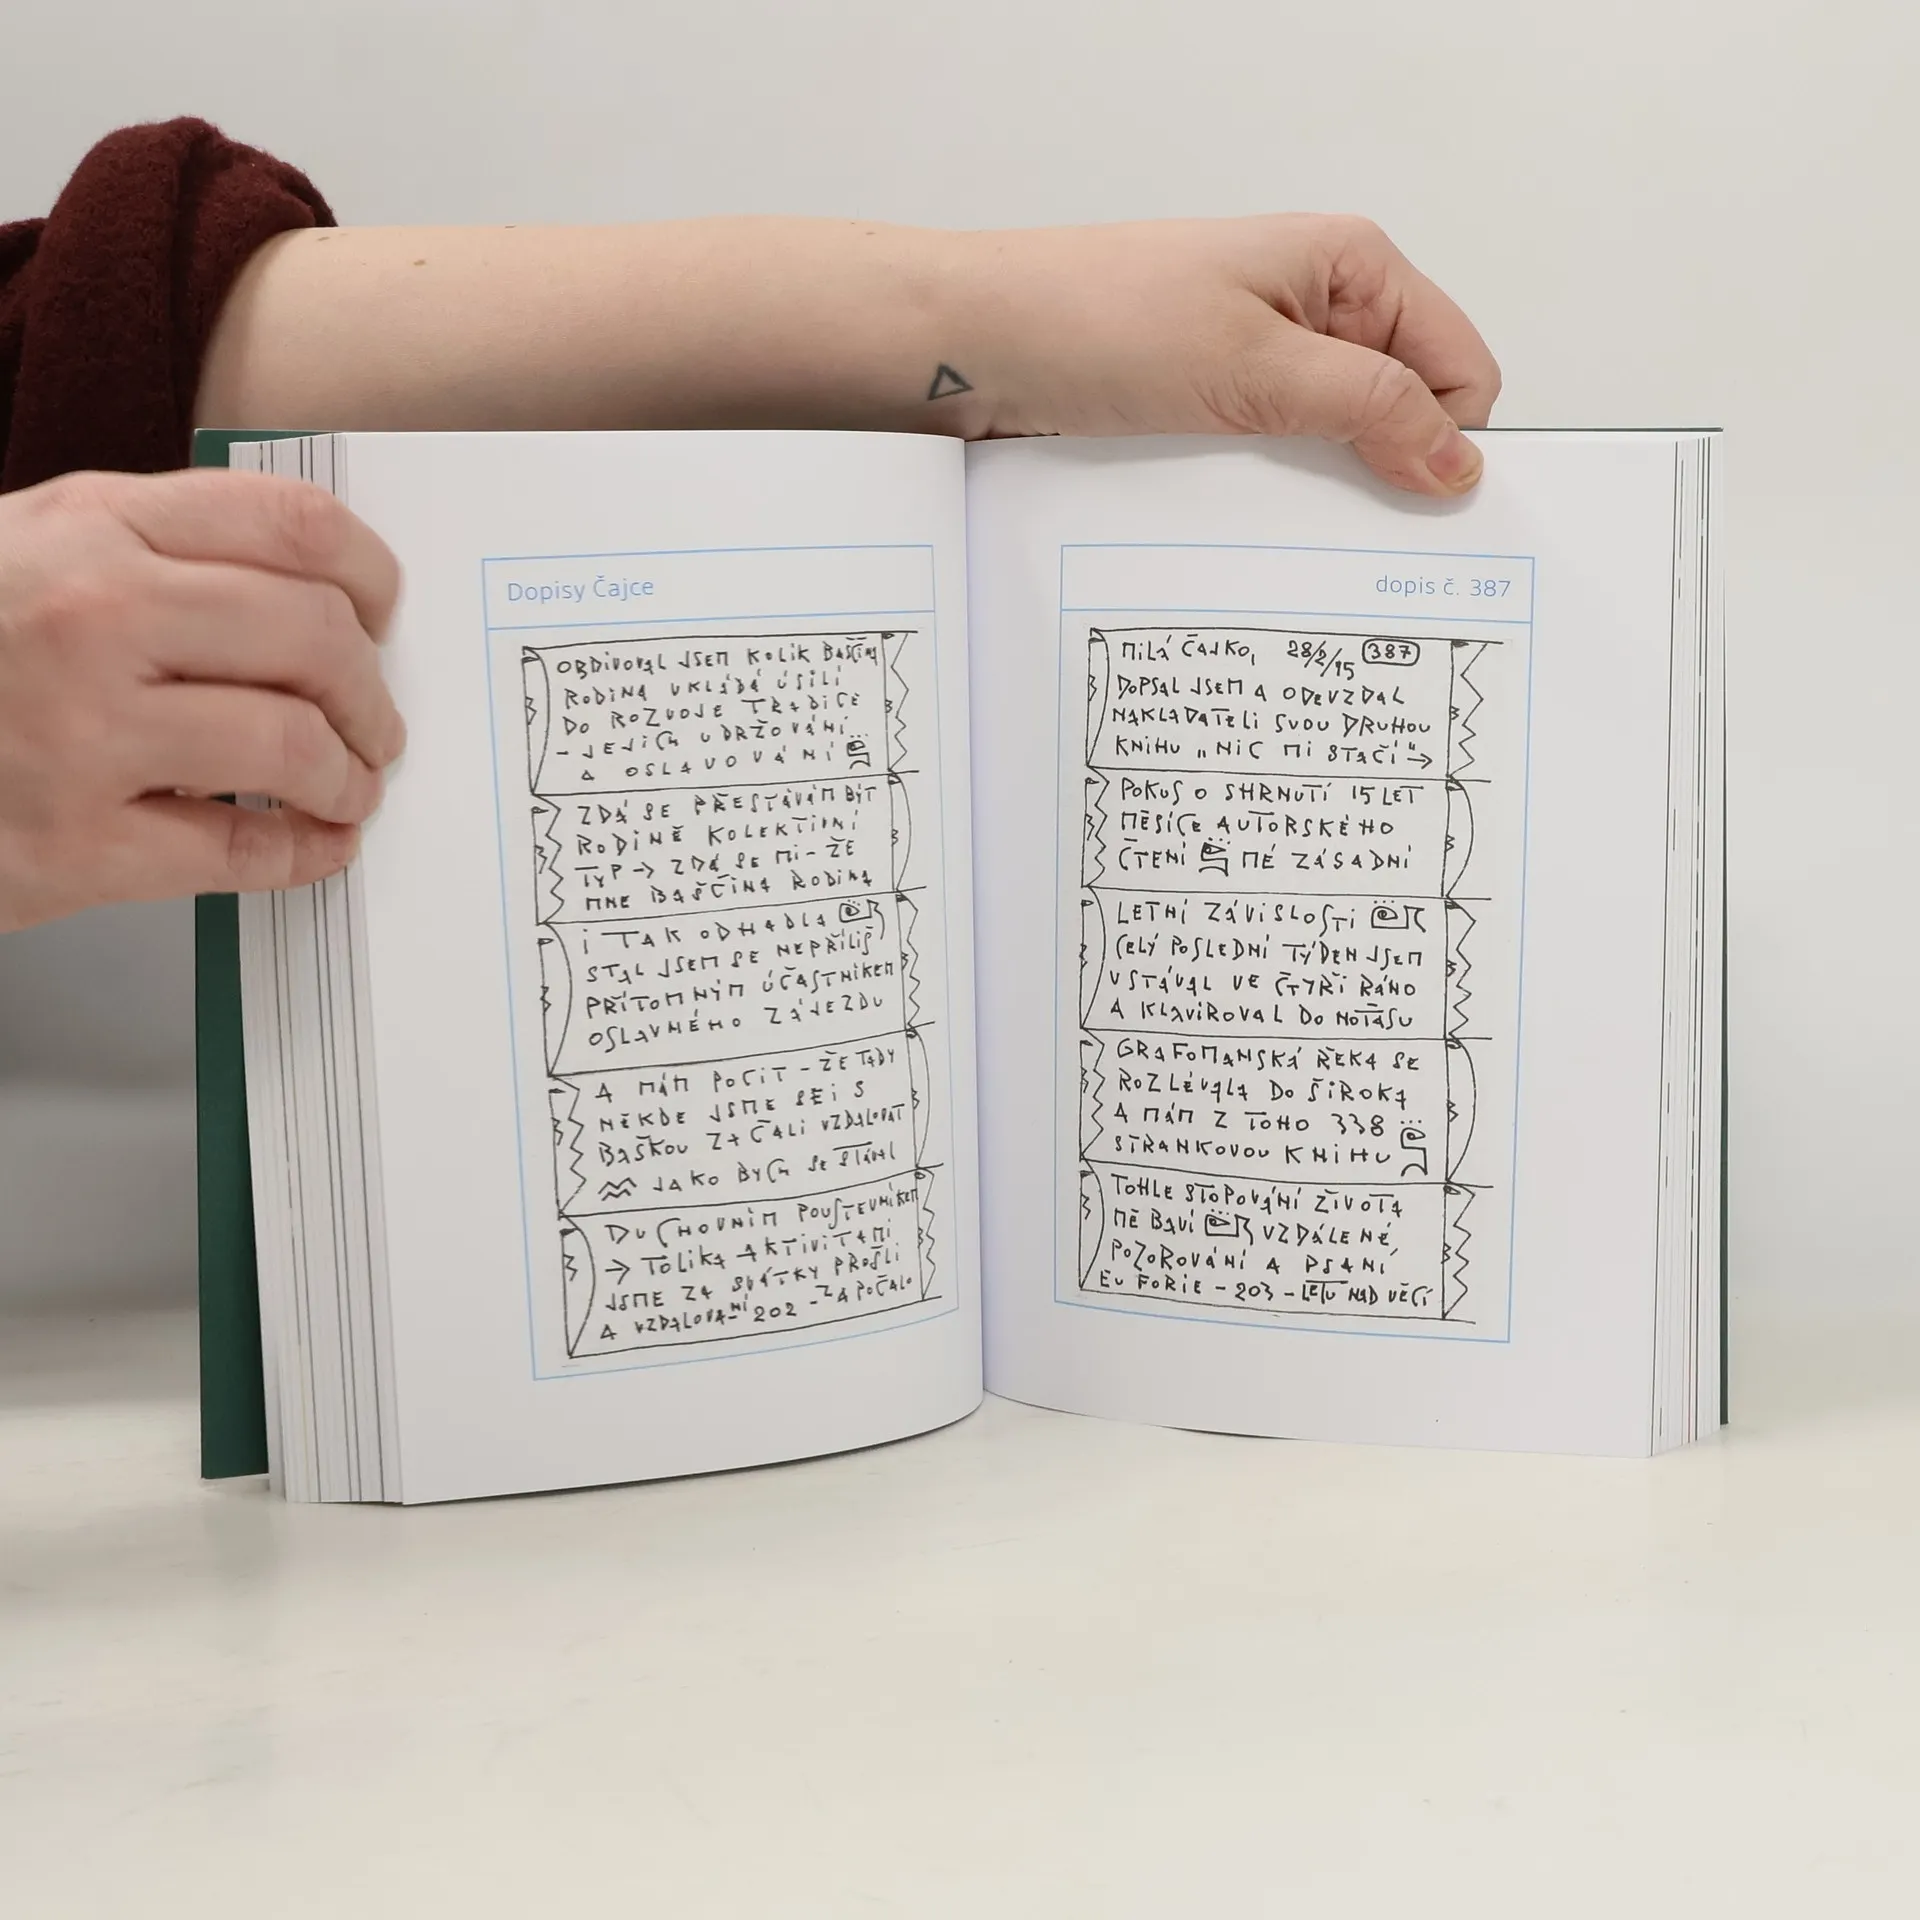 Dopisy Čajce
OBDIVOVAL JSEM KOLIK BAŠČINA
RODINA VKLÁDÁ ÚSILÍ
DO ROZVOJE TRADICE
- JEJICH UDRŽOVÁNÍ
A OSLAVOVÁNÍ
ZDÁ SE PŘESTÁVÁM BÝT
RODINĚ KOLEKTIVNÍ
TYP → ZDÁ SE MI - ŽE
MNE BAŠČINA RODINA
I TAK ODHADLA
STAL JSEM SE NEPŘÍLIŠ
PŘÍTOMNÝM ÚČASTNÍKEM
OSLAVNÉHO ZÁJEZDU
A MÁM POCIT - ŽE TADY
NĚKDE JSME SEI S
BAŠKOU ZAČALI VZDALOVAT
JAKO BYCH SE STÁVAL
DUCHOVNÍM POUSTEVNÍKEM
→ TOLIKA AKTIVITAMI
JSME ZA SVÁTKY PROŠLI
A VZDALOVANÍ 202 - ZAPOČALO
dopis č. 387
MILÁ ČAJKO, 28/2/15 387
DOPSAL JSEM A ODEVZDAL
NAKLADATELI SVOU DRUHOU
KNIHU „NIC MI STAČÍ" →
POKUS O SHRNUTÍ 15 LET
MĚSÍCE AUTORSKÉHO
ČTENÍ MÉ ZÁSADNÍ
LETNÍ ZÁVISLOSTI
CELÝ POSLEDNÍ TÝDEN JSEM
VSTÁVAL VE ČTYŘI RÁNO
A KLAVÍROVAL DO NOTASU
GRAFOMANSKÁ ŘEKA SE
ROZLÉVALA DO ŠIROKA
A MÁM Z TOHO 338
STRANKOVOU KNIHU
TOHLE STOPOVÁNÍ ŽIVOTA
MĚ BAVÍ VZDÁLENÉ
POZOROVÁNÍ A PSANÍ
EUFORIE - 203 - LETU NAD VĚCÍ